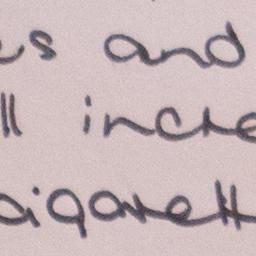 s and
ll incre
igarett